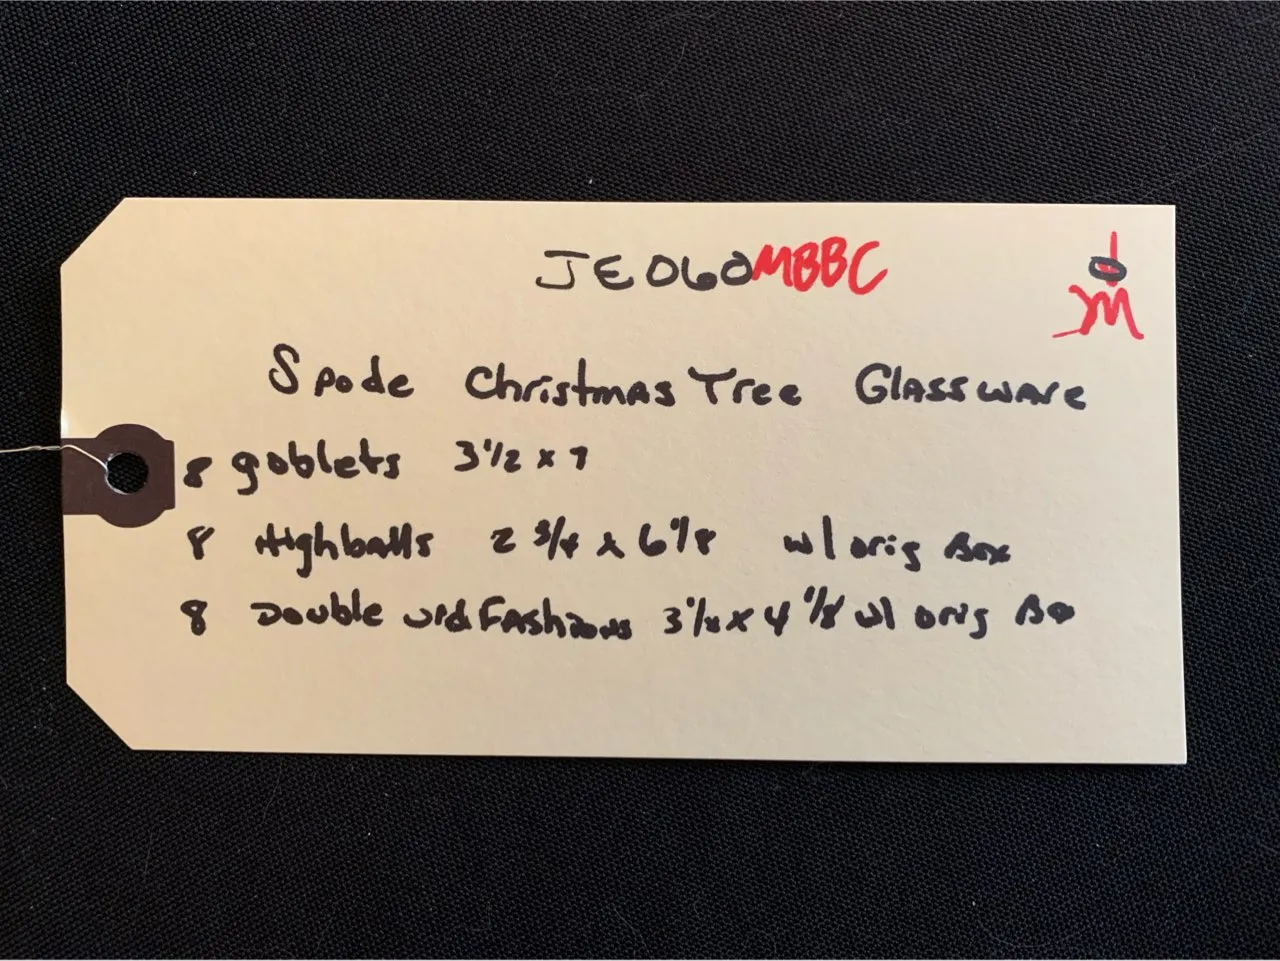 JE060MBBC
Spode Christmas Tree Glassware
8 goblets 3 1/2 x 7
8 Highballs 2 3/4 x 6 1/8 w/ orig Box
8 Double Old Fashions x 4 1/8 w/ orig